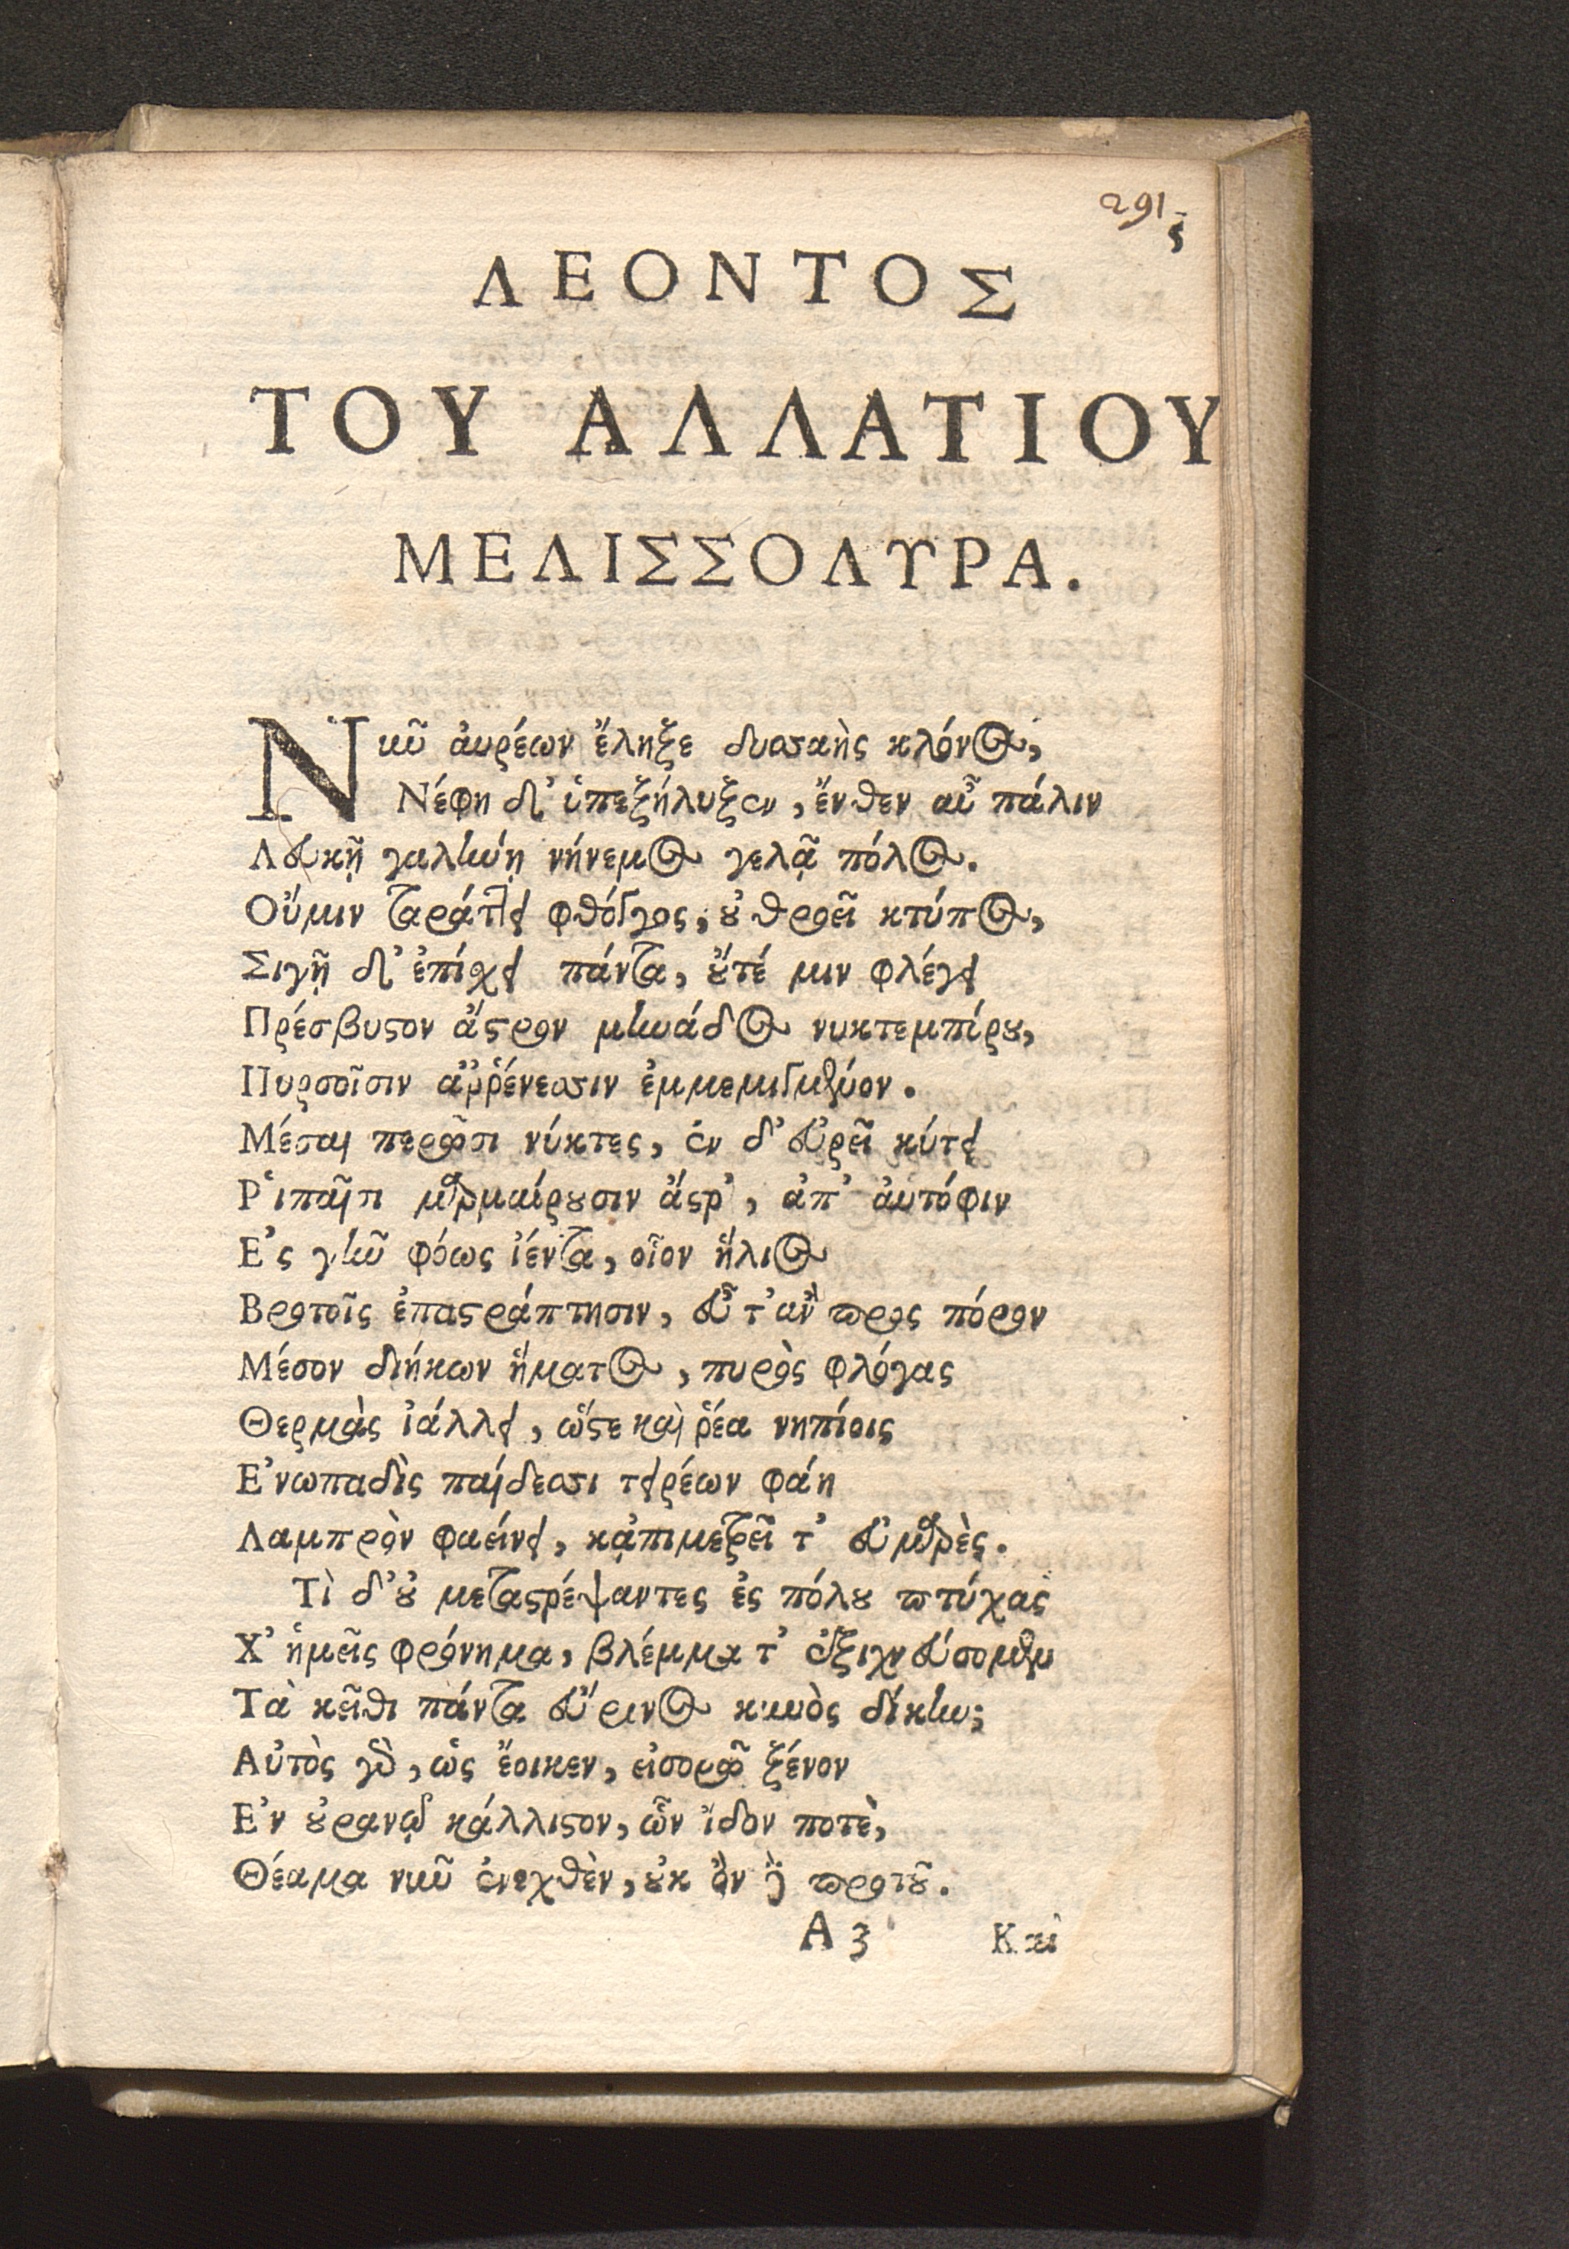 291
5
ΛΕΟΝΤΟΣ
ΤΟΥ ΑΛΛΑΤΙΟΥ
ΜΕΛΙΣΣΟΛΥΡΑ.
Νῦν ἀυρέων ἔληξε δυσαὴς κλόνος,
Νέφη δ' ὑπεξήλυξεν, ἔνθεν αὖ πάλιν
Λευκῇ γαλήνῃ νήνεμος γελᾷ πόλος.
Οὔ μιν ταράττει φθόγγος, οὐ θροεῖ κτύπος,
Σιγῇ δ' ἐπέχει πάντα, οὔτέ μιν φλέγει
Πρέσβυστον ἄστρον μηνάδος νυκτεμπίρου,
Πυρσοῖσιν ἀῤῥένεσσιν ἐμμεμιγμένον.
Μέσαι περῶσι νύκτες, ἐν δ' εὐρεῖ κύτει
Ῥιπαῖσι μαρμαίρουσιν ἄστρ', ἀπ' ἀυτόφιν
Ἐς γῆν φόως ἱέντα, οἷον ἥλιος
Βροτοῖς ἐπαστράπτησιν, εὖτ' ἂν πρὸς πόρον
Μέσον διήκων ἤματος, πυρὸς φλόγας
Θερμὰς ἰάλλει, ὥστε καὶ ῥέα νηπίοις
Ἐνωπαδὶς παίδεσσι τειρέων φάη
Λαμπρὸν φαείνει, κᾀπιμετρεῖ τ' εὐμαρὲς.
Τὶ δ' οὐ μεταστρέψαντες ἐς πόλου πτύχας
Χ' ἡμεῖς φρόνημα, βλέμμα τ' ἐξιχνεύσομεν
Τὰ κεῖθι πάντα εὔρινος κυνὸς δίκην;
Αὐτὸς γὰρ, ὡς ἔοικεν, εἰσορῶ ξένον
Ἐν οὐρανῷ κάλλιστον, ὧν ἴδον ποτὲ,
Θέαμα νῦν ἐνεχθὲν, οὐκ ὂν πρὸ τοῦ.
Α 3 Καὶ